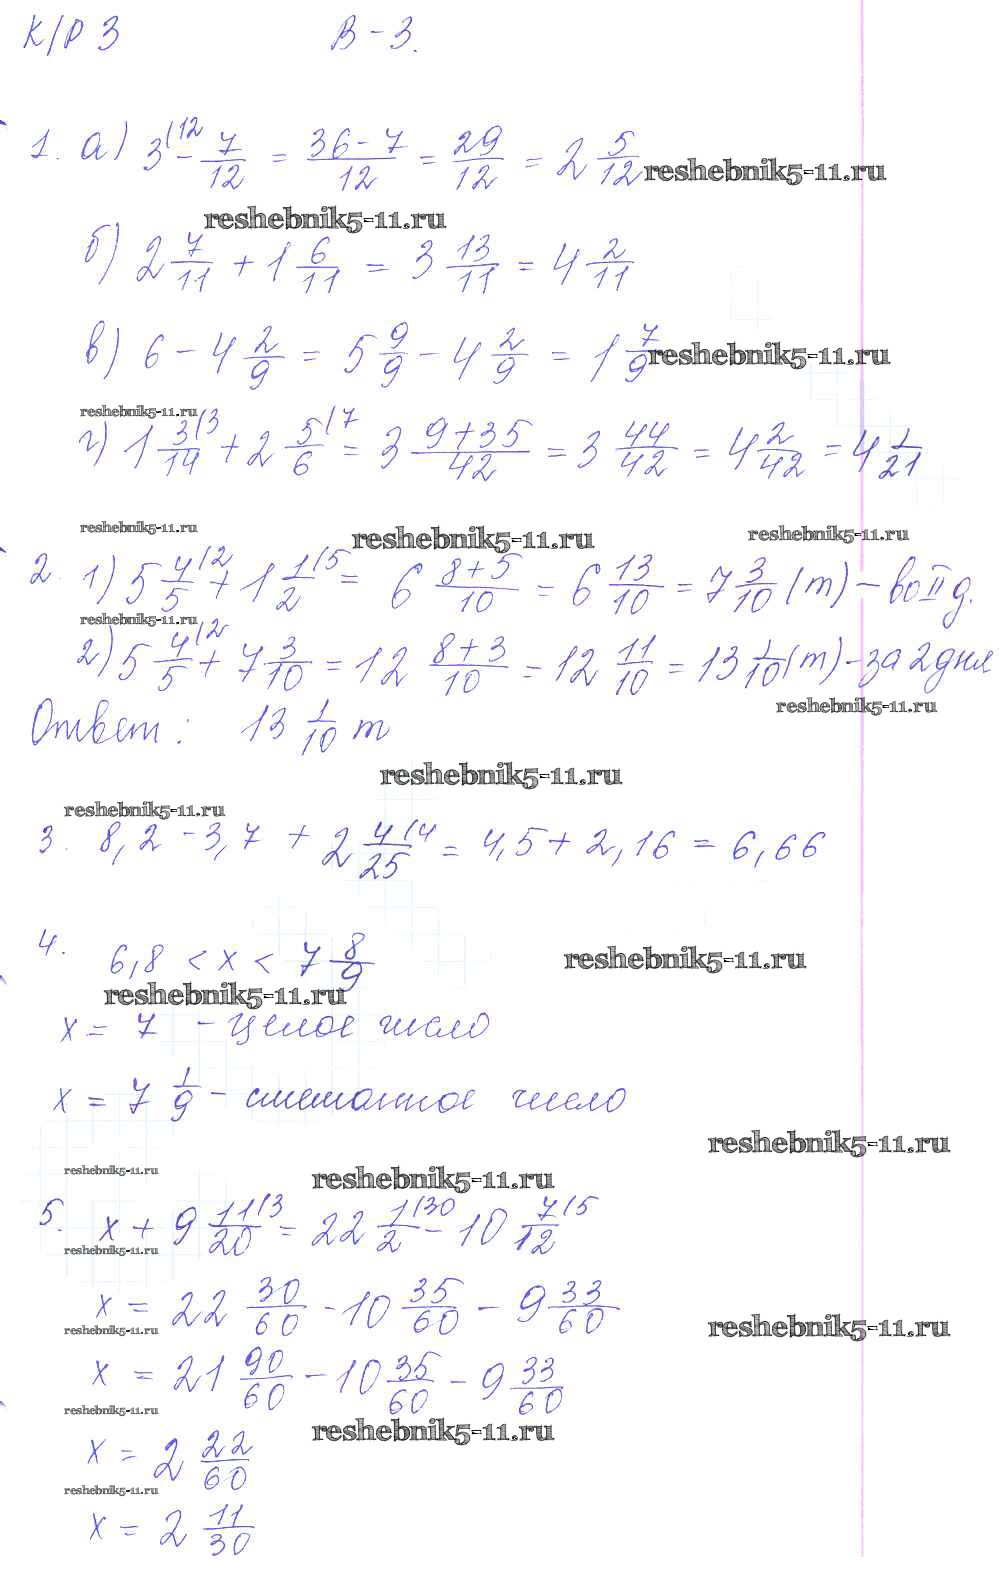 К/Р 3 В-3.
1. а) 3(12 - 7/12 = 36-7/12 = 29/12 = 2 5/12 reshebnik5-11.ru
reshebnik5-11.ru
б) 2 7/11 + 1 6/11 = 3 13/11 = 4 2/11
в) 6 - 4 2/9 = 5 9/9 - 4 2/9 = 1 7/9 reshebnik5-11.ru
reshebnik5-11.ru
г) 1 3/14(3 + 2 5/6(7 = 3 9+35/42 = 3 44/42 = 4 2/42 = 4 1/21
reshebnik5-11.ru reshebnik5-11.ru reshebnik5-11.ru
2. 1) 5 4/5(2 + 1 1/2(5 = 6 8+5/10 = 6 13/10 = 7 3/10 (т) - во II д.
reshebnik5-11.ru
2) 5 4/5(2 + 7 3/10 = 12 8+3/10 = 12 11/10 = 13 1/10 (т) - за 2 дня
reshebnik5-11.ru
Ответ: 13 1/10 т
reshebnik5-11.ru
reshebnik5-11.ru
3. 8,2 - 3,7 + 2 4/25(4 = 4,5 + 2,16 = 6,66
4. 6,8 < x < 7 8/9 reshebnik5-11.ru
reshebnik5-11.ru
x = 7 - целое число
x = 7 1/9 - смешанное число
reshebnik5-11.ru
reshebnik5-11.ru reshebnik5-11.ru
5. x + 9 11/20(3 = 22 1/2(30 - 10 7/12(5
reshebnik5-11.ru
x = 22 30/60 - 10 35/60 - 9 33/60
reshebnik5-11.ru reshebnik5-11.ru
x = 21 90/60 - 10 35/60 - 9 33/60
reshebnik5-11.ru reshebnik5-11.ru
x = 2 22/60
reshebnik5-11.ru
x = 2 11/30